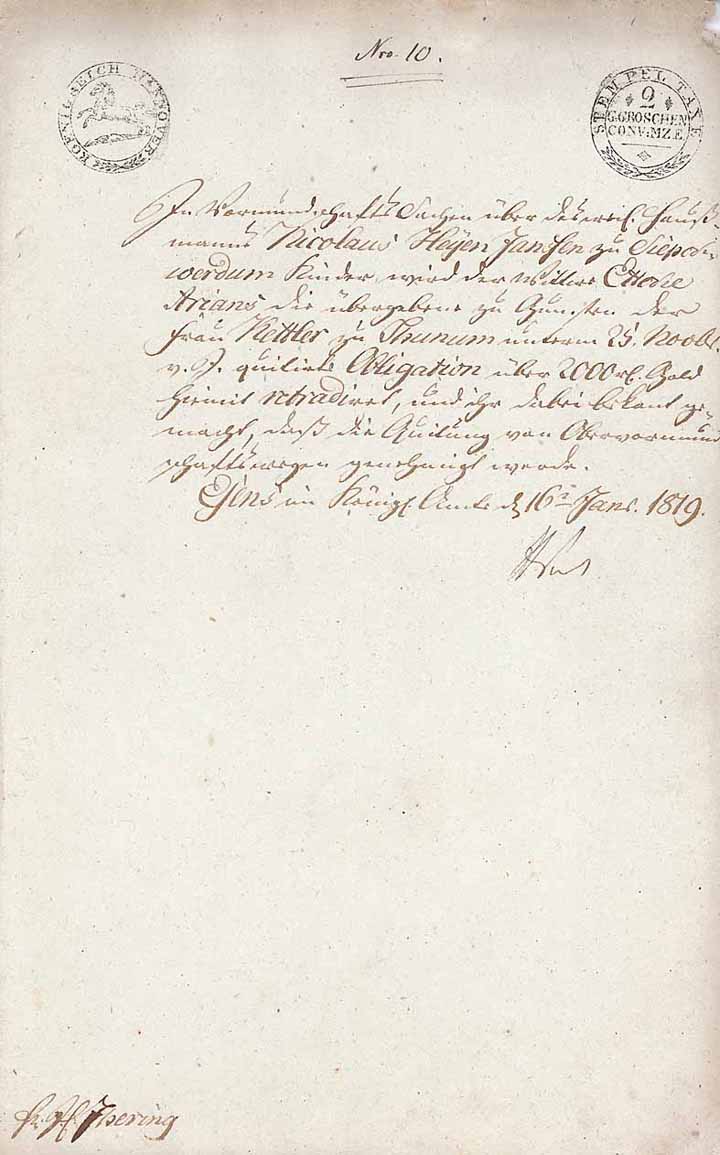 Nro. 10.
KOENIGREICH HANNOVER
STEMPEL TAXE
2
G.GROSCHEN
CONV:MZE
In Vormundschafts Sachen über des weil. Hauß-
manns Nicolaus Heyen Janssen zu
werdum Kinder, wird der Wittwe
Arians die übergebene zu Gunsten der
Frau Kettler zu Thunum unterm 25. Novbr.
v. J. quitirte Obligation über 2000 rl. Gold
hiemit retradiret, und ihr dabei bekant ge-
macht, daß die Quitung von Obervormund
schaftswegen genehmigt werde.
Esens im Königl. Amte d 16 Janr. 1819.
Jhering